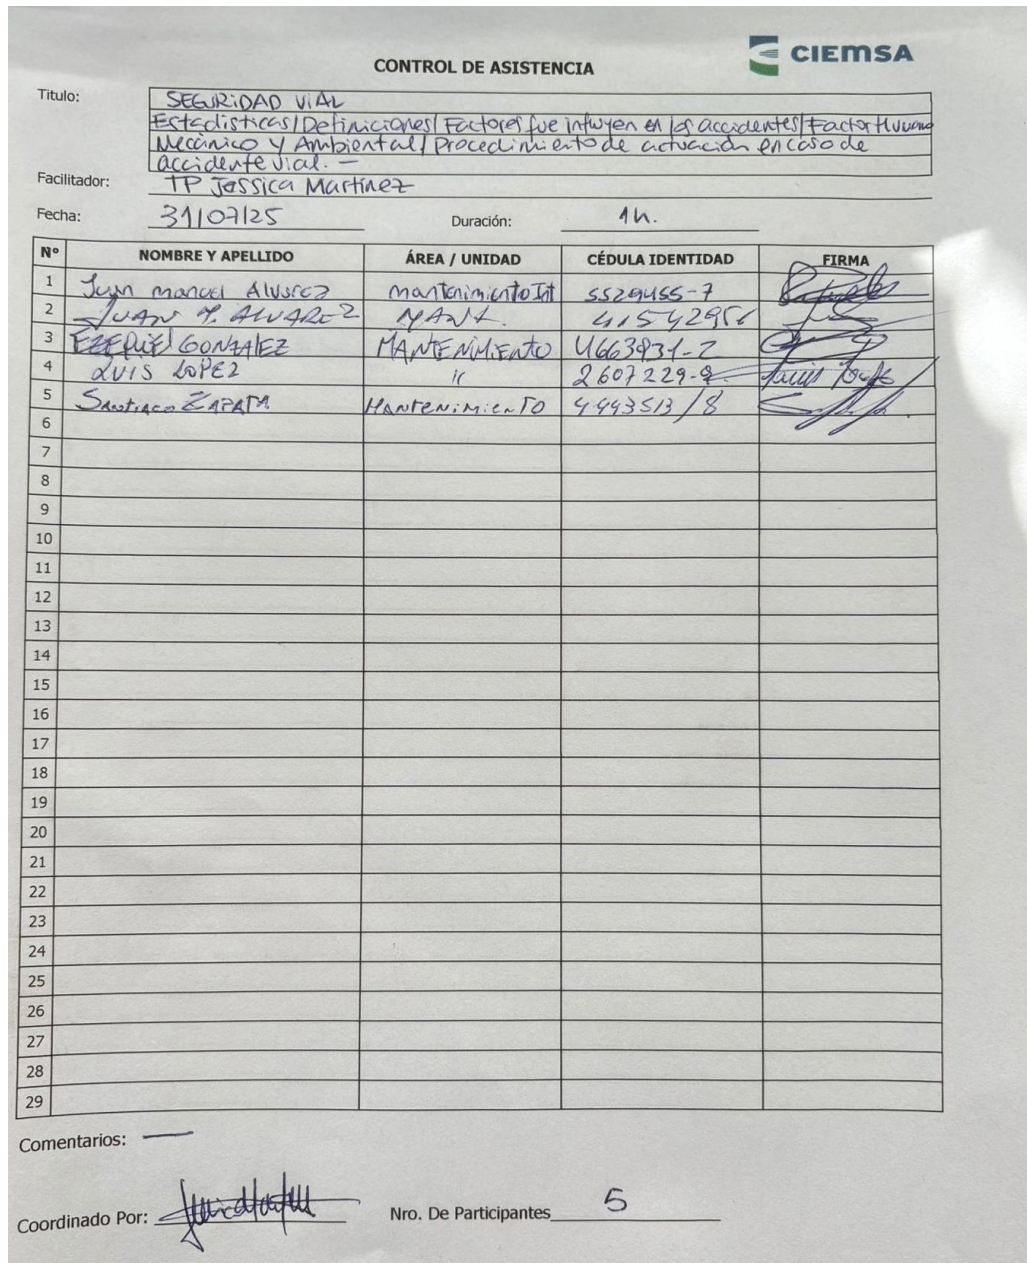 CIEMSA
CONTROL DE ASISTENCIA
Titulo: SEGURIDAD VIAL
Estadisticas/Definiciones/Factores que influyen en los accidentes/Factor Humano
Mecánico y Ambiental/Procedimiento de actuación en caso de
accidente vial. —
Facilitador: TP Jessica Martínez
Fecha: 31/07/25 Duración: 1h.
Nº NOMBRE Y APELLIDO ÁREA / UNIDAD CÉDULA IDENTIDAD FIRMA
1 Juan manuel Alvarez mantenimiento Int 5529455-7
2 JUAN M. ALVAREZ MANT. 41542956
3 EZEQUIEL GONZALEZ MANTENIMIENTO 4663831-2
4 LUIS LOPEZ 11 2607229-9
5 Santiago ZAPATA Mantenimiento 4443513/8
6
7
8
9
10
11
12
13
14
15
16
17
18
19
20
21
22
23
24
25
26
27
28
29
Comentarios: —
Coordinado Por: Nro. De Participantes 5